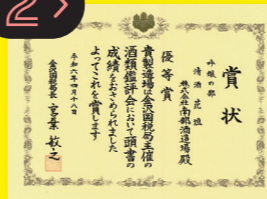 賞状
吟醸の部
清酒 花垣
株式会社南部酒造場殿
優等賞
貴製造場は金沢国税局主催の
酒類鑑評会において頭書の
成績をおさめられました
よってこれを賞します
令和六年四月十八日
金沢国税局長